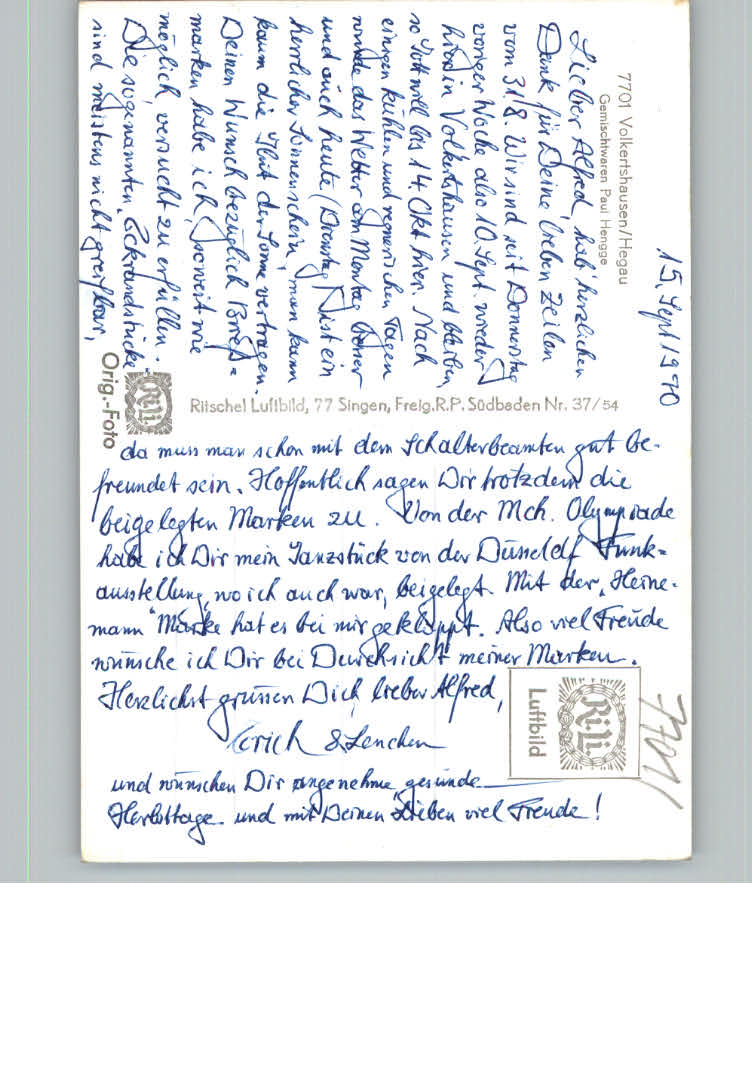 15. Sept 1970
7701 Volkertshausen/Hegau
Gemischtwaren Paul Hengge
Lieber Alfred, hab' herzlichen
Dank für Deine lieben Zeilen
vom 31/8. Wir sind seit Donnerstag
voriger Woche also 10. Sept. wieder
hier in Volkertshausen und bleiben,
so Gott will bis 14 Okt hier. Nach
einigen kühlen und regnerischen Tagen
wurde das Wetter am Montag besser
und auch heute (Dienstag) ist ein
herrlicher Sonnenschein, man kann
kaum die Glut der Sonne vertragen.
Deinen Wunsch bezüglich Brief=
marken habe ich, soweit wie
möglich versucht zu erfüllen.
Die sogenannten "Eckrandstücke"
sind meistens nicht greifbar,
Orig.-Foto
RiLi
Ritschel Luftbild, 77 Singen, Freig.R.P. Südbaden Nr. 37/54
da muss man schon mit dem Schalterbeamten gut be-
freundet sein. Hoffentlich sagen Dir trotzdem die
beigelegten Marken zu. Von der Mch. Olympiade
habe ich Dir mein von der Düsseldf Funk=
ausstellung, wo ich auch war, beigelegt. Mit der "Heine-
mann" Marke hat es bei mir geklappt. Also viel Freude
wünsche ich Dir bei Durchsicht meiner Marken.
Herzlichst grüssen Dich, lieber Alfred,
Erich & Lenchen
und wünschen Dir angenehme, gesunde
Herbsttage und mit Deinen Lieben viel Freude!
RiLi
Luftbild
7701